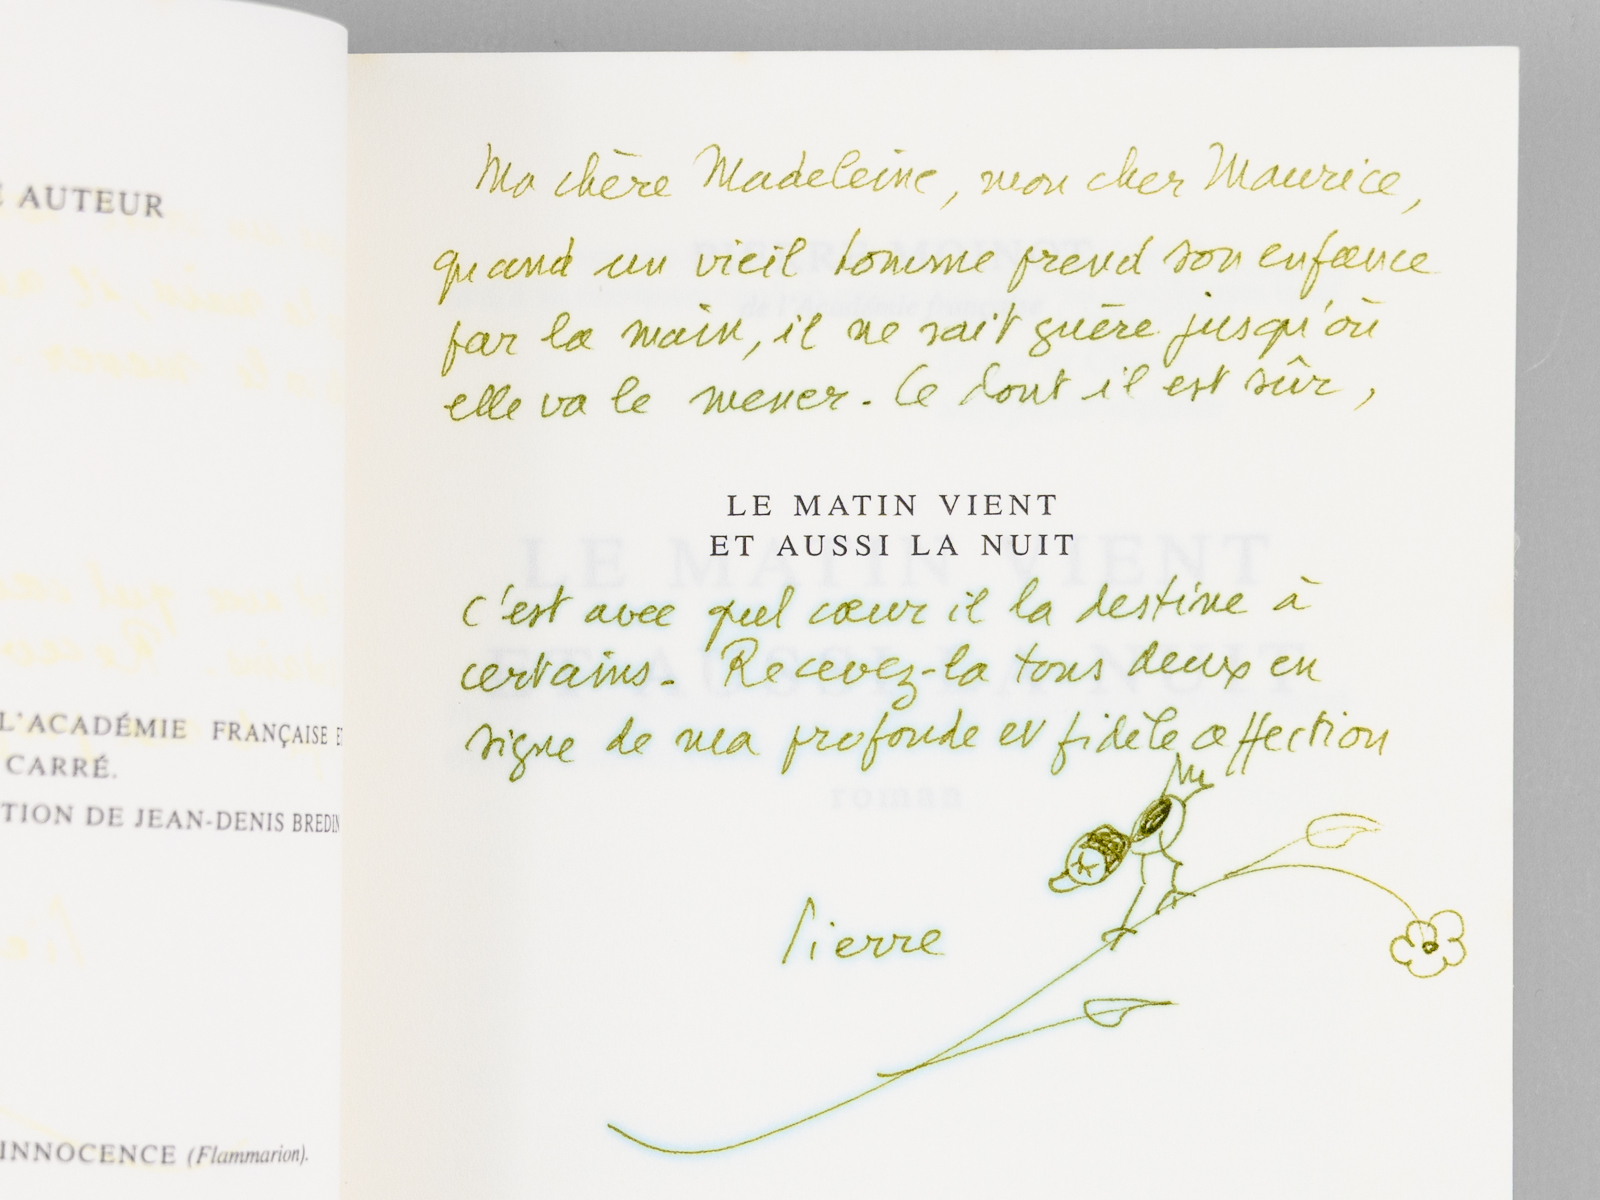 E AUTEUR
L'ACADÉMIE FRANÇAISE E
CARRÉ.
TION DE JEAN-DENIS BREDIN
INNOCENCE (Flammarion).
Ma chère Madeleine, mon cher Maurice,
quand un vieil homme prend son enfance
par la main, il ne sait guère jusqu'où
elle va le mener. Ce dont il est sûr,
LE MATIN VIENT
ET AUSSI LA NUIT
c'est avec quel cœur il la destine à
certains. Recevez-la tous deux en
signe de ma profonde et fidèle affection
Pierre
PIERRE MOINOT
de l'Académie française
LE MATIN VIENT
ET AUSSI LA NUIT
roman